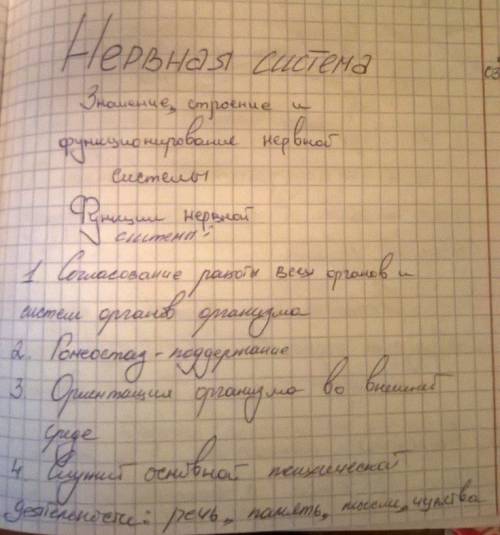 Нервная система
Значение, строение и
функционирование нервной
системы
Функции нервной
системы:
1 Согласование работы всех органов и
систем органов организма
2. Гомеостаз - поддержание
3. Ориентация организма во внешней
среде
4. Служит основной психической
деятельности: речь, память, мысли, чувства